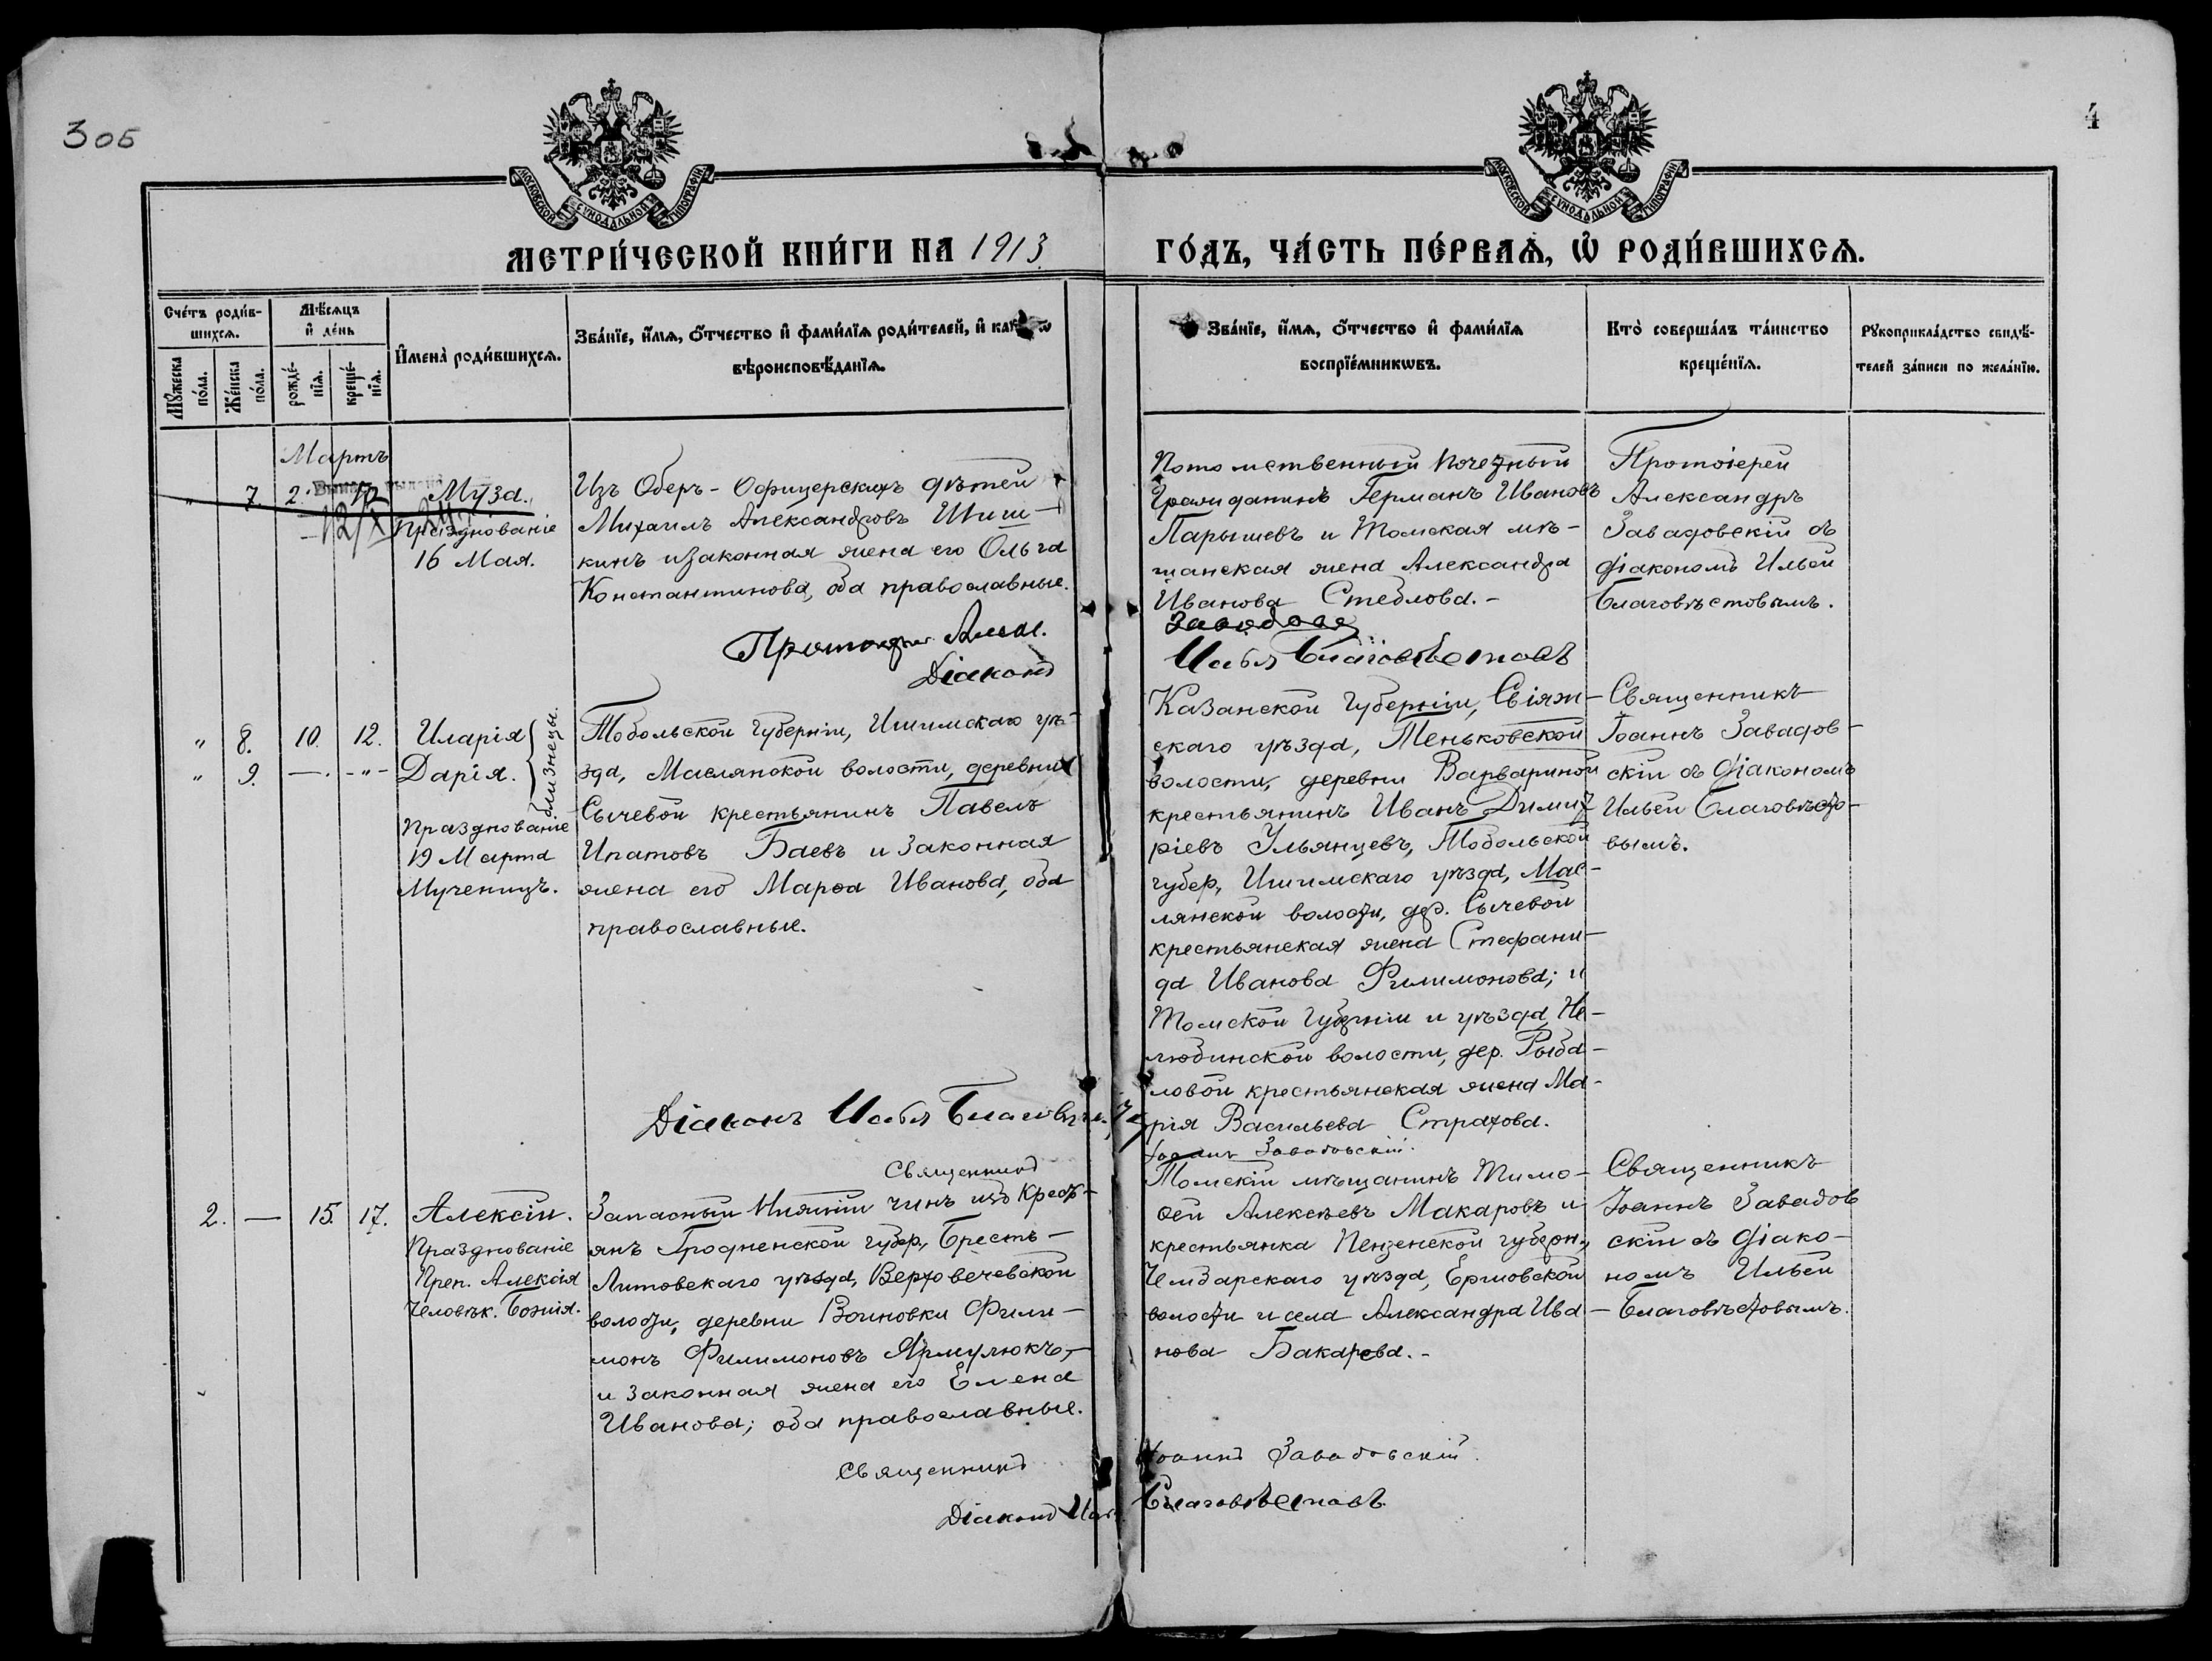 305
4
МОСКОВСКОЙ СѴНОДАЛЬНОЙ ТИПОГРАФІИ
МОСКОВСКОЙ СѴНОДАЛЬНОЙ ТИПОГРАФІИ
МЕТРИ́ЧЕСКОЙ КНИ́ГИ НА 1913
ГО́ДЪ, ЧА́СТЬ ПЕ́РВАѦ, Ѡ҆ РОДИ́ВШИХСѦ.
Сче́тъ роди́в-
шихсѧ.
Мѣ́сѧцъ
и҆ де́нь
Мꙋ́жеска
по́ла.
Же́нска
по́ла.
рожде́-
нїѧ.
креще́-
нїѧ.
И҆мена̀ роди́вшихсѧ.
Зва́нїе, и҆́мѧ, ѻ҆́тчество и҆ фами́лїѧ роди́телей, и҆
вѣроисповѣ́данїѧ.
Зва́нїе, и҆́мѧ, ѻ҆́тчество и҆ фами́лїѧ
воспрїе́мникѡвъ.
Кто̀ соверша́лъ та́инство
креще́нїѧ.
Рꙋкоприкла́дство свидѣ́-
телей за́писи по жела́нїю.
Мартъ
" 7. 2. Муза.
Празднованіе
16 Мая.
Изъ Оберъ-Офицерскихъ дѣтей
Михаилъ Александровъ Шиш-
кинъ и законная жена его Ольга
Константинова, оба православные.
Діаконъ
Потомственный Почетный
Гражданинъ Германъ Ивановъ
Парышевъ и Томская мѣ-
щанская жена Александра
Иванова Стеблова.-
Благовѣстовъ
Протоіерей
Александръ
Завадовскій съ
діакономъ Ильей
Благовѣстовымъ.
" 8. 10. 12. Иларія
" 9. —. -"- Дарія.
близнецы.
Празднованіе
19 Марта
Мученицъ.
Тобольской Губерніи, Ишимскаго уѣ-
зда, Маслянской волости, деревни
Сычевой крестьянинъ Павелъ
Ипатовъ Баевъ и законная
жена его Марѳа Иванова, оба
православные.
Діаконъ Илья
Казанской Губерніи, Свіяж-
скаго уѣзда, Меньковской
волости, деревни Варвариной
крестьянинъ Иванъ Димит
ріевъ Ульянцевъ, Тобольской
губер., Ишимскаго уѣзда, Мас-
лянской волости, дер. Сычевой
крестьянская жена Стефани-
да Иванова Филимонова; и
Томской Губерніи и уѣзда, Не-
любинской волости, дер. Рыба-
ловой крестьянская жена Ма-
рія Васильева Страхова.
Іоаннъ Завадовскій.
Священникъ
Іоаннъ Завадов-
скій съ діакономъ
Ильей Благовѣсто-
вымъ.
Священникъ
2. — 15. 17. Алексій.
Празднованіе
Преп. Алексія
Человѣк. Божія.
Запасный Нижній чинъ изъ Крест-
янъ Гродненской губер., Брестъ-
Литовскаго уѣзда, Верховечевской
волости, деревни Воиновки Фили-
монъ Филимоновъ Ярмулюкъ,-
и законная жена его Елена
Иванова; оба православные.
Священникъ
Діаконъ
Томскій мѣщанинъ Тимо-
ѳей Алексѣевъ Макаровъ и
крестьянка Пензенской губерн.,
Чембарскаго уѣзда, Ершовской
волости и села Александра Ива-
нова Бакарева.-
Іоаннъ Завадовскій.
Благовѣстовъ
Священникъ
Іоаннъ Завадов
скій съ діако-
номъ Ильей
Благовѣстовымъ.